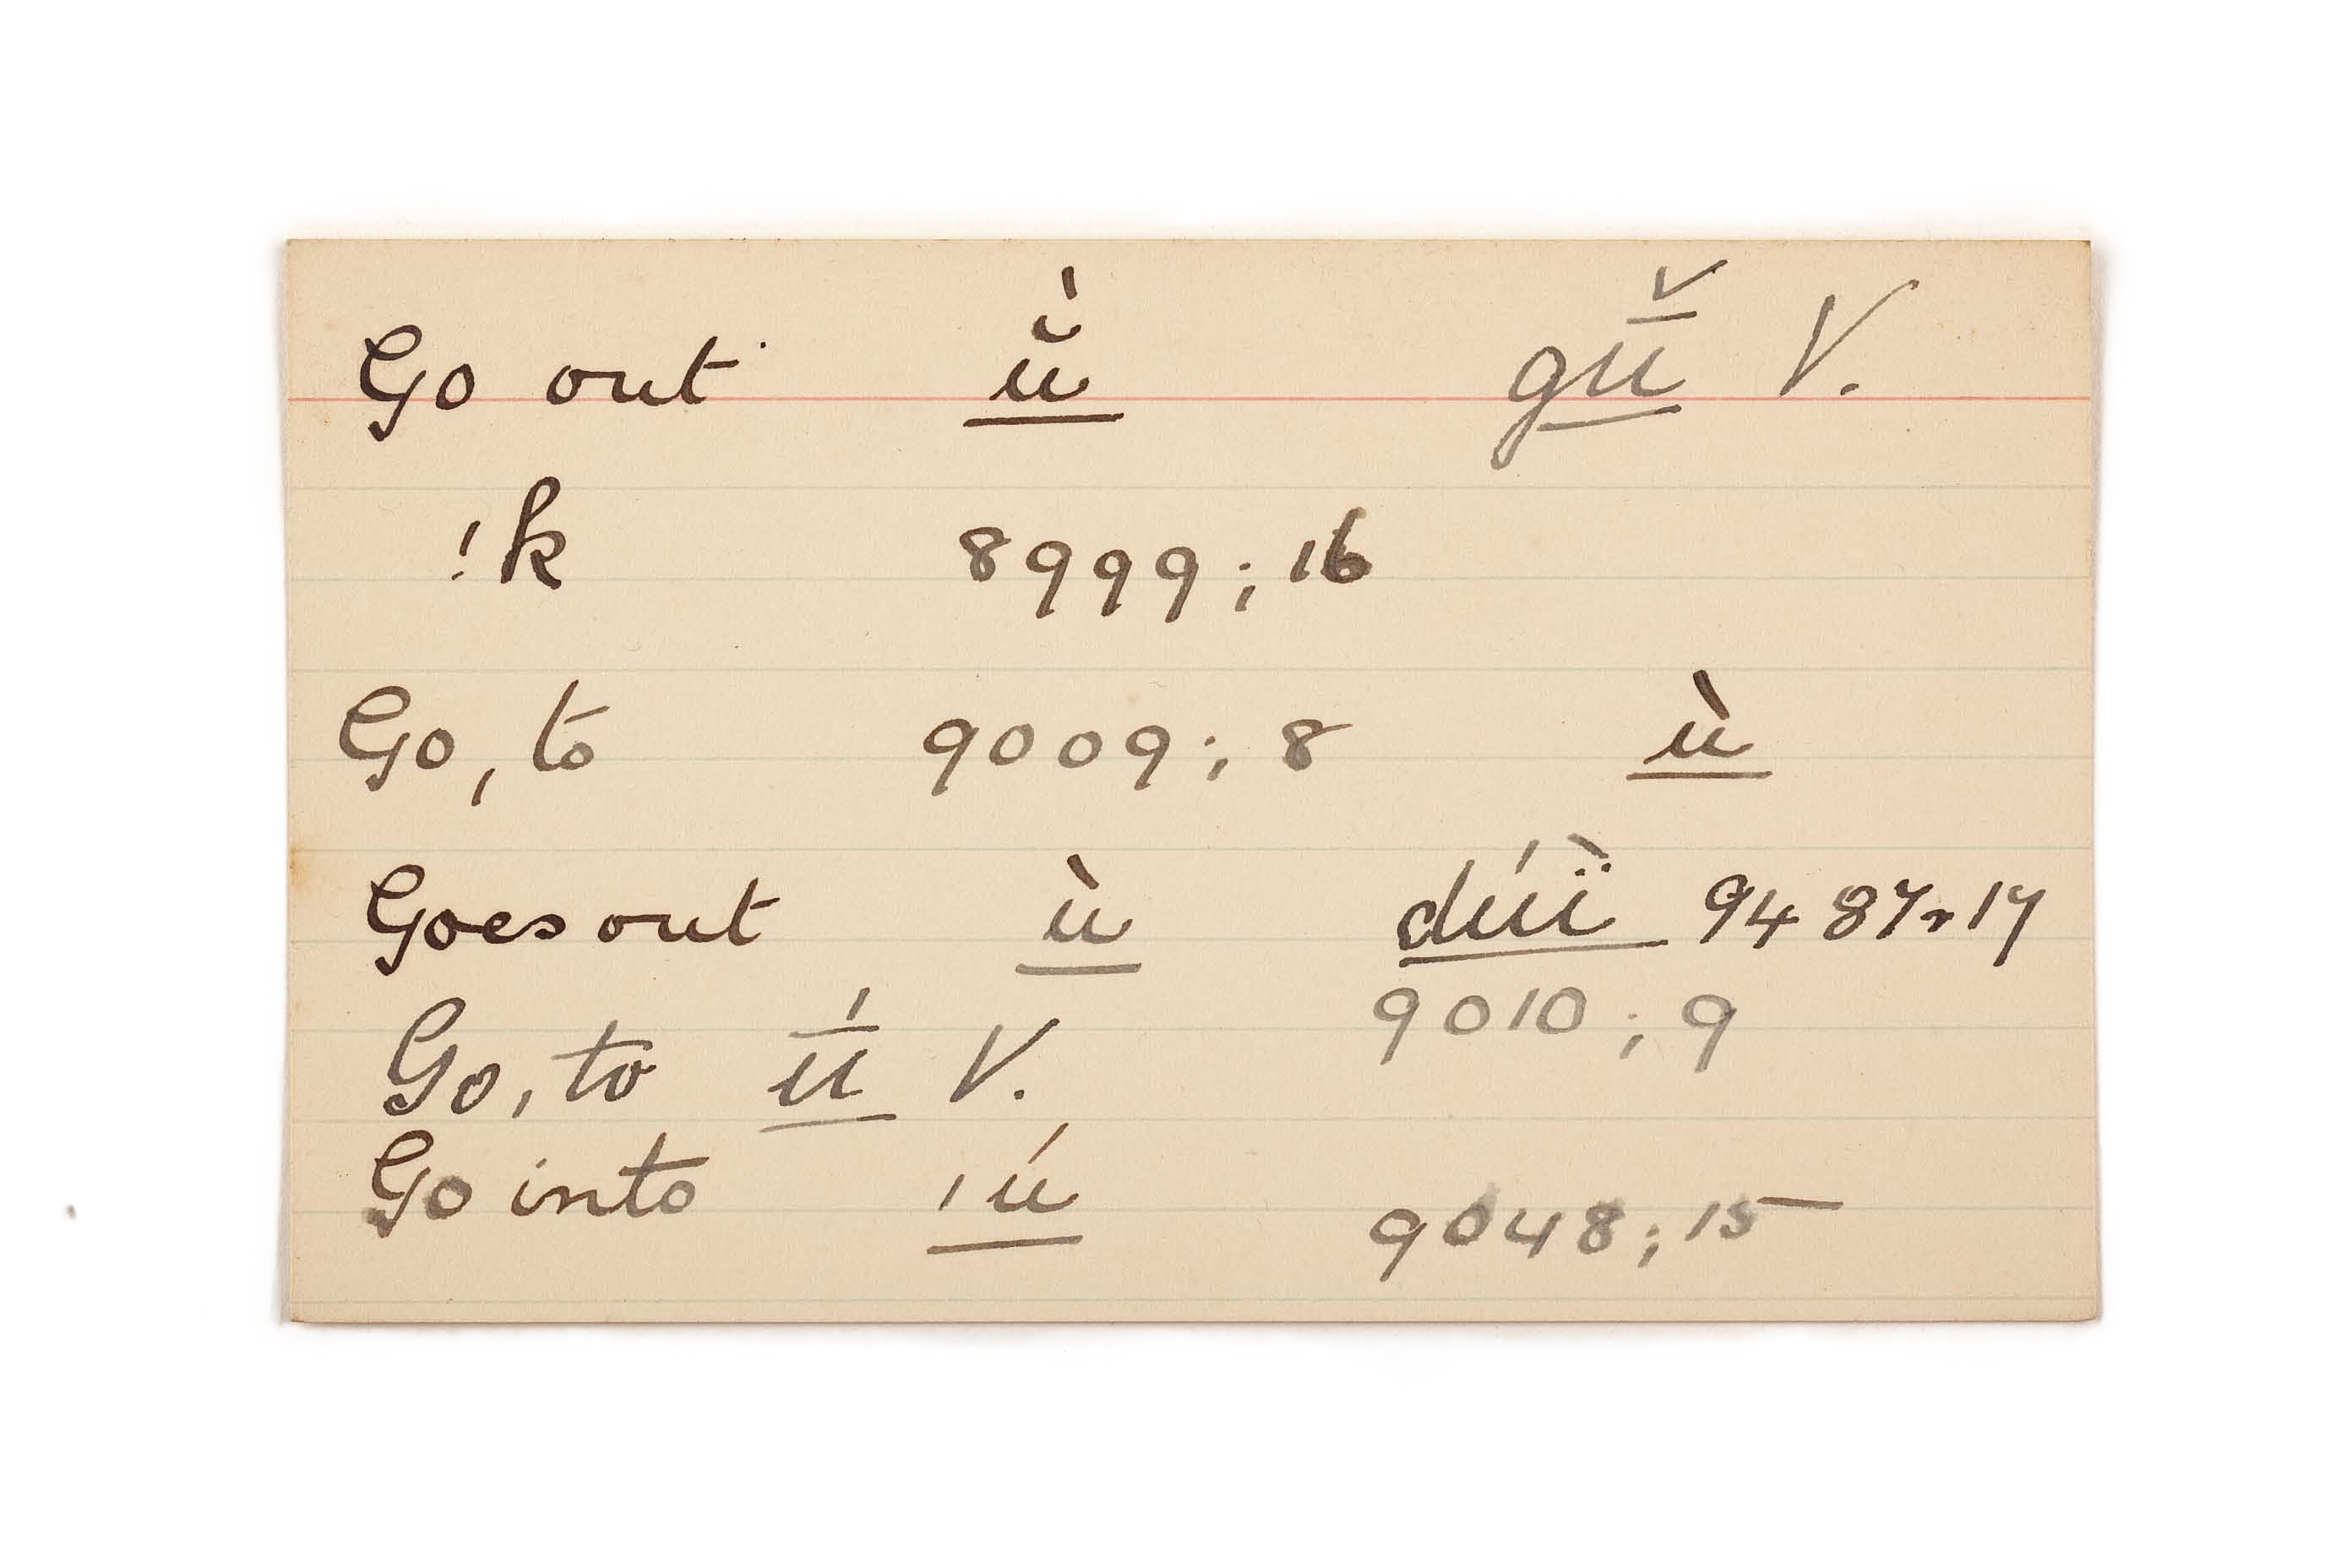 Go out ŭ̀ gū̌ V.
!k 8999; 16
Go, to 9009; 8 ù
Goes out ù dúï̀ 9487, 17
9010; 9
Go, to ū́ V.
Go into ıú 9048; 15